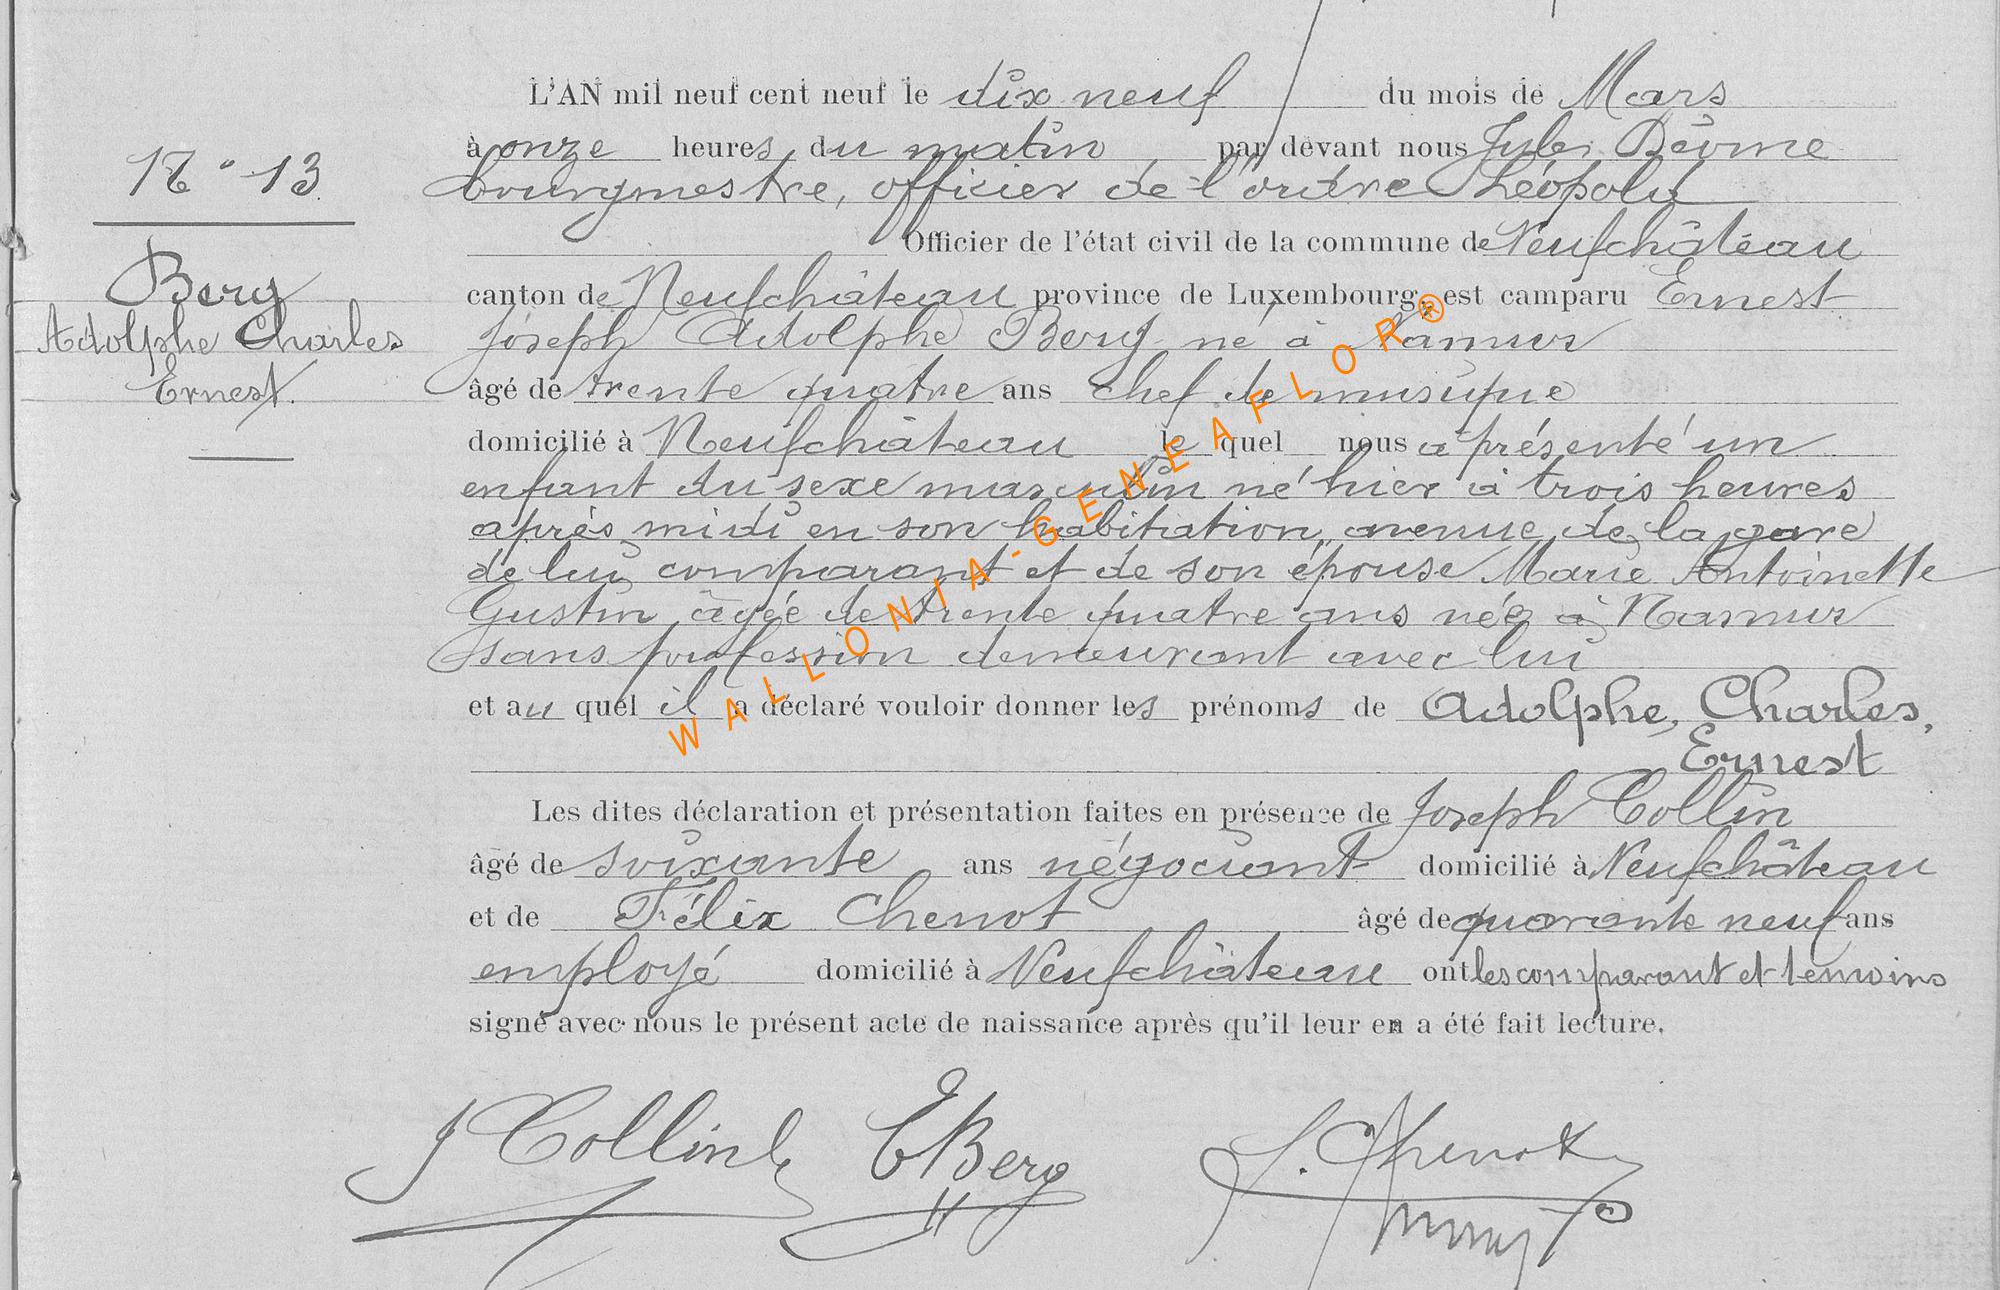 L'AN mil neuf cent neuf le dix neuf du mois de Mars
à onze heures du matin par devant nous Jules
N° 13
bourgmestre, officier de l'ordre Léopold
Officier de l'état civil de la commune de Neufchâteau
Berg
canton de Neufchâteau province de Luxembourg, est camparu Ernest
Adolphe Charles
Joseph Adolphe Berg né à Namur
Ernest.
âgé de trente quatre ans chef de musique
domicilié à Neufchâteau le quel nous a présenté un
enfant du sexe masculin né hier à trois heures
après midi en son habitation, avenue de la gare
de lui comparant et de son épouse Marie Antoinette
Gustin âgée de trente quatre ans née à Namur
sans profession demeurant avec lui
et au quel il a déclaré vouloir donner les prénoms de Adolphe, Charles,
Ernest
Les dites déclaration et présentation faites en présence de Joseph Collin
âgé de soixante ans négociant domicilié à Neufchâteau
et de Félix Chenot âgé de quarante neuf ans
employé domicilié à Neufchâteau ont les comparant et témoins
signé avec nous le présent acte de naissance après qu'il leur en a été fait lecture.
J Collin EBerg F. Chenot
WALLONIA-GENEAFLOR®